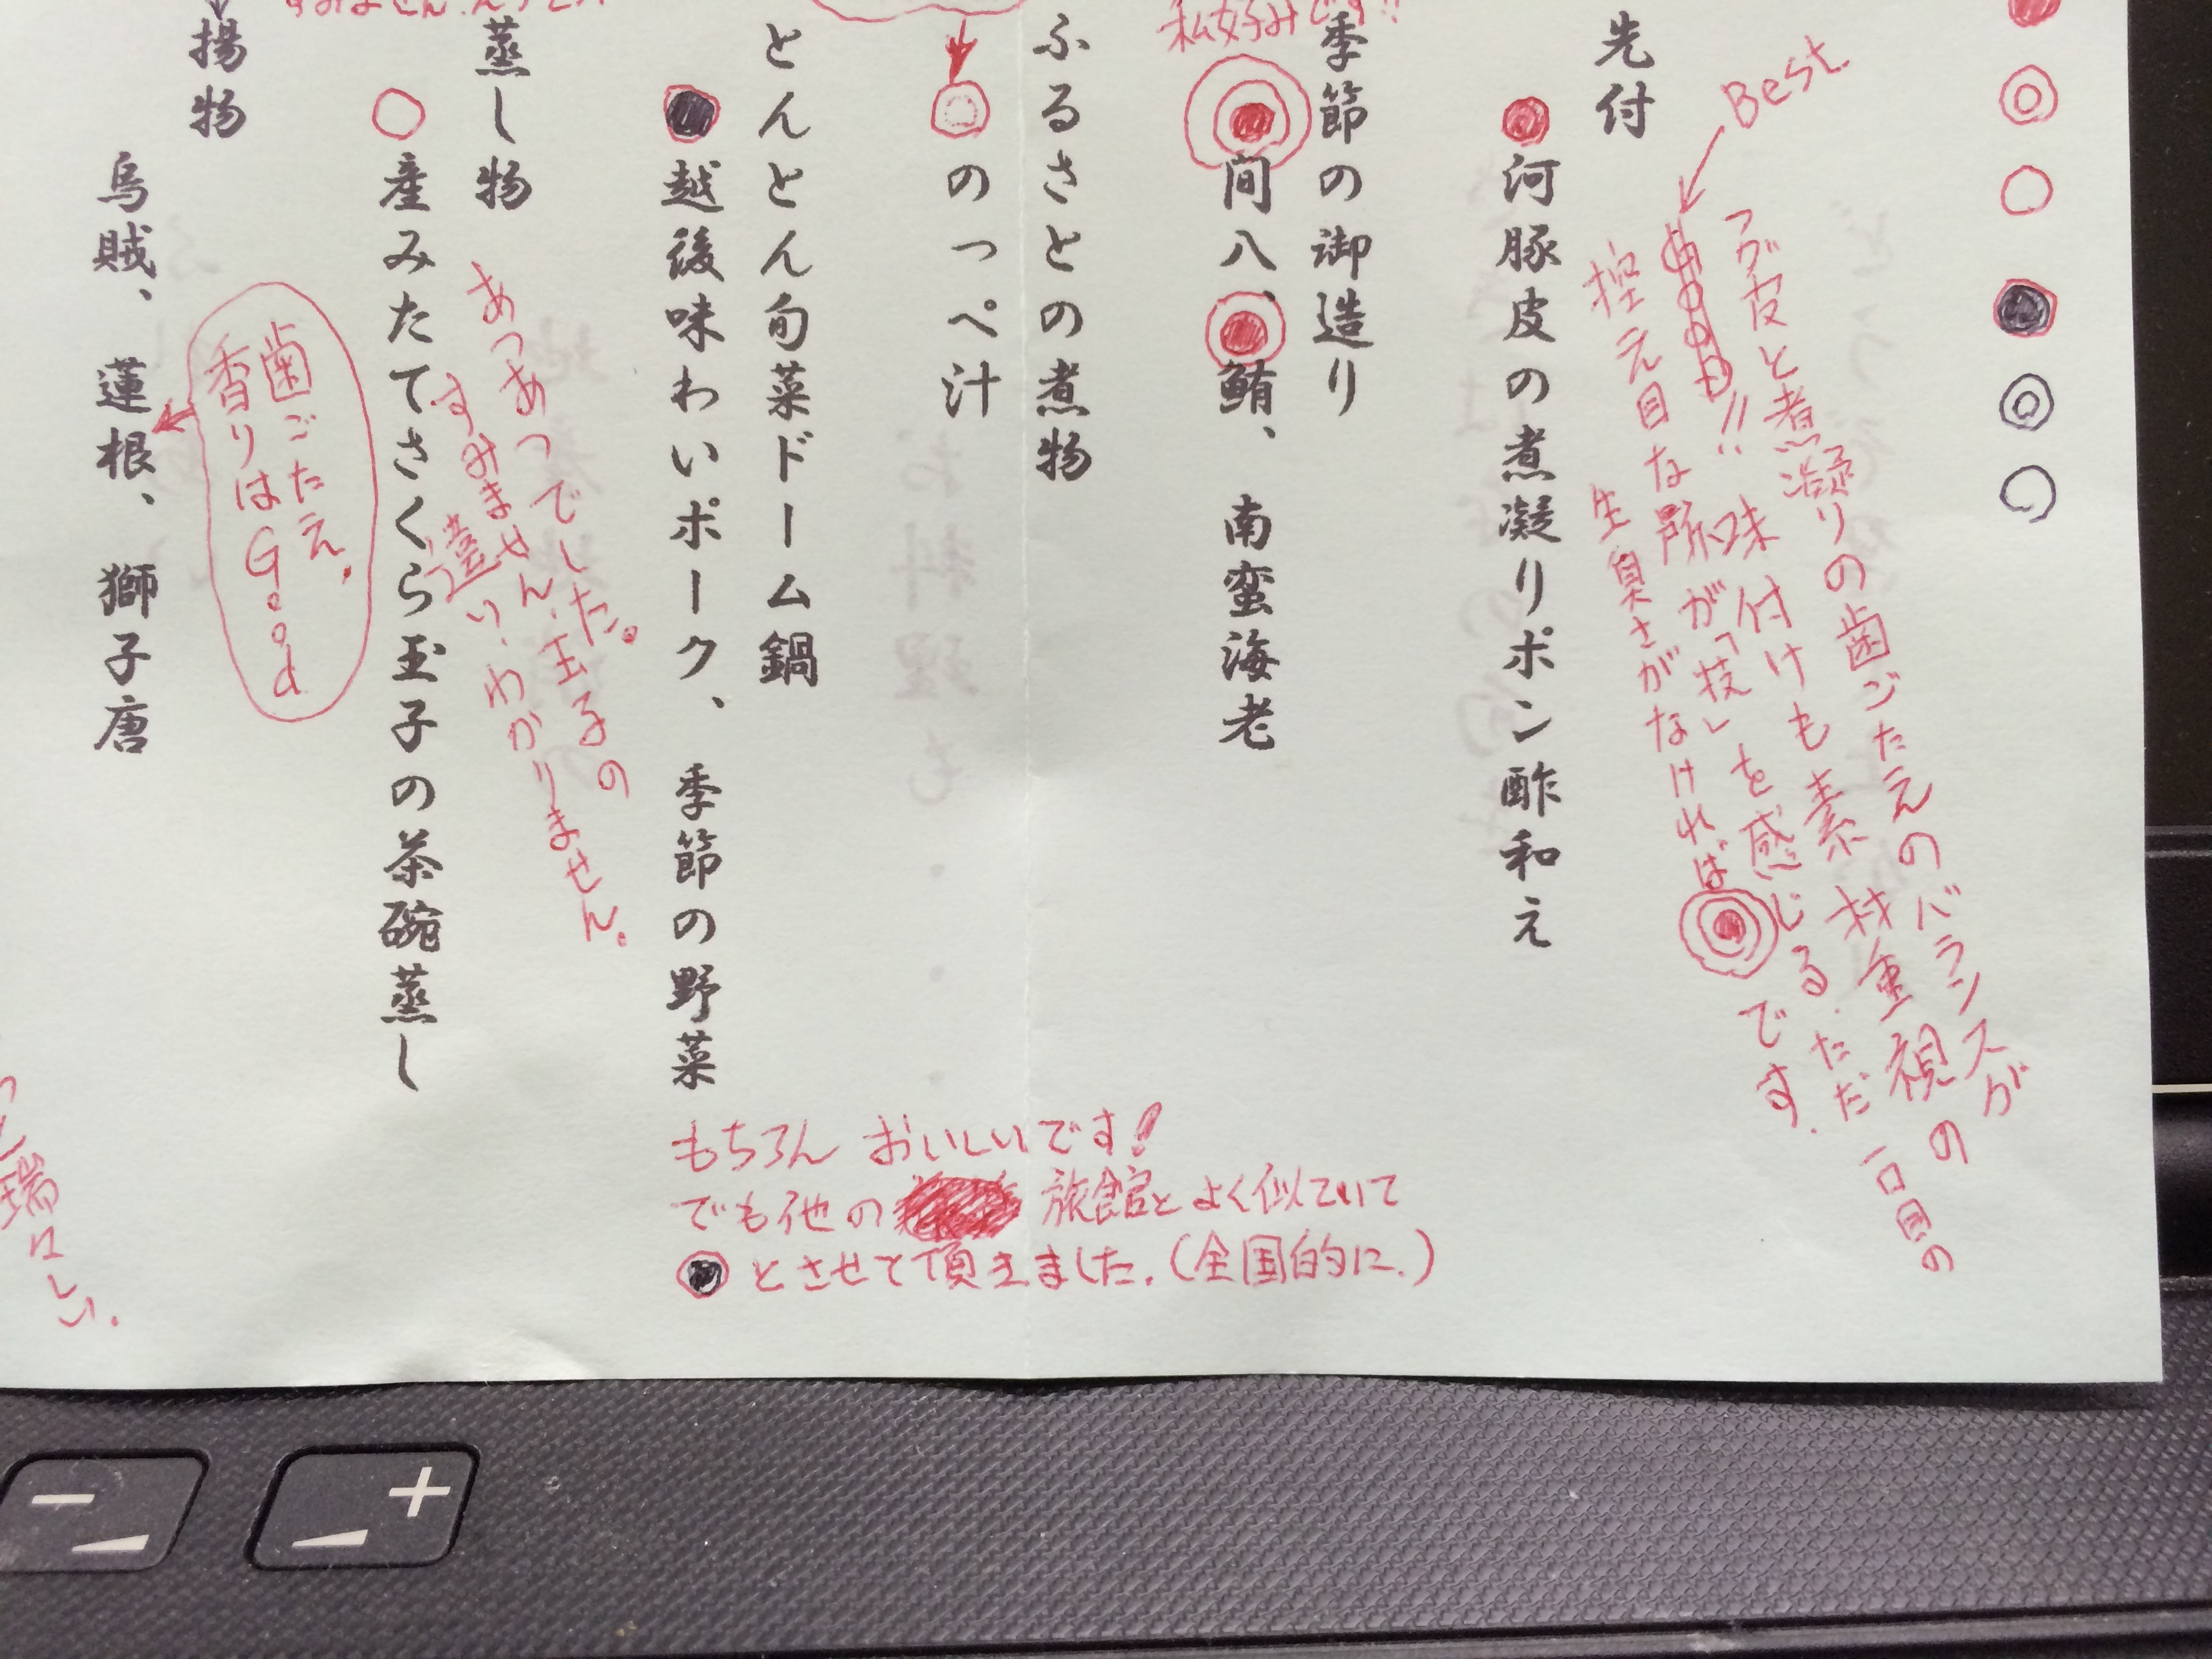 Best.
フグ皮と煮凝りの歯ごたえのバランスグ
!! 味付けも素材重視の
控え目な所が「技」を感じる。ただ一口目の
生臭さがなければ◎です。
先付
河豚皮の煮凝りポン酢和え
私好みです!!
季節の御造り
間八、鮪、南蛮海老
ふるさとの煮物
のっぺ汁
とんとん旬菜ドーム鍋
越後味わいポーク、季節の野菜
もちろん おいしいです!
でも他の 旅館とよく似ていて
とさせて頂きました。(全国的に。)
蒸し物
あつあつでした。玉子の
すみません、違い、わかりません。
産みたてさくら玉子の茶碗蒸し
揚物
歯ごたえ、
香りはGood
烏賊、蓮根、獅子唐
- +